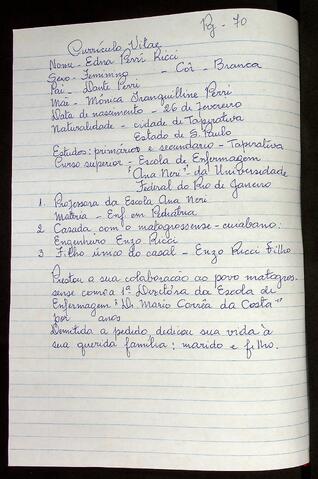 Pg - 70
Currículo Vitae
Nome - Edna Perri Ricci
Sexo - Feminino - Côr - Branca
Pai - Dante Perri
Mãe - Mônica Tranquilline Perri
Data de nascimento - 26 de fevereiro
Naturalidade - cidade de Taperativa
Estado de S. Paulo
Estudos: primários e secundário - Taperativa
Curso superior - Escola de Enfermagem
"Ana Neri" da Universidade
Federal do Rio de Janeiro
1. Professora da Escola Ana Neri
Matéria - Enf. em Pediatria
2. Casada com o matogrossense - cuiabano:
Engenheiro Enzo Ricci
3 Filho único do casal - Enzo Ricci Filho
Prestou a sua colaboração ao povo matogros.
sense como a 1ª Diretora da Escola de
Enfermagem "Dr. Mario Corrêa da Costa"
por anos
Demitida a pedido, dedicou sua vida à
sua querida família: marido e filho.